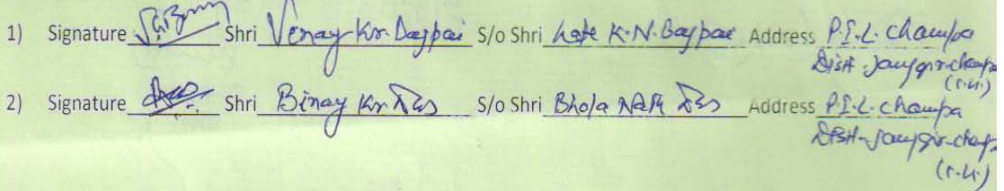 1) Signature Shri Vinay Kr. Bajpai S/o Shri Late K.N. Bajpai Address P.I.L. Champa
Distt-Janjgir-champa
(c.g.)
2) Signature Shri Binay Kr Das S/o Shri Bhola Nath Das Address P.I.L. Champa
Distt-Janjgir-champa
(c.g.)